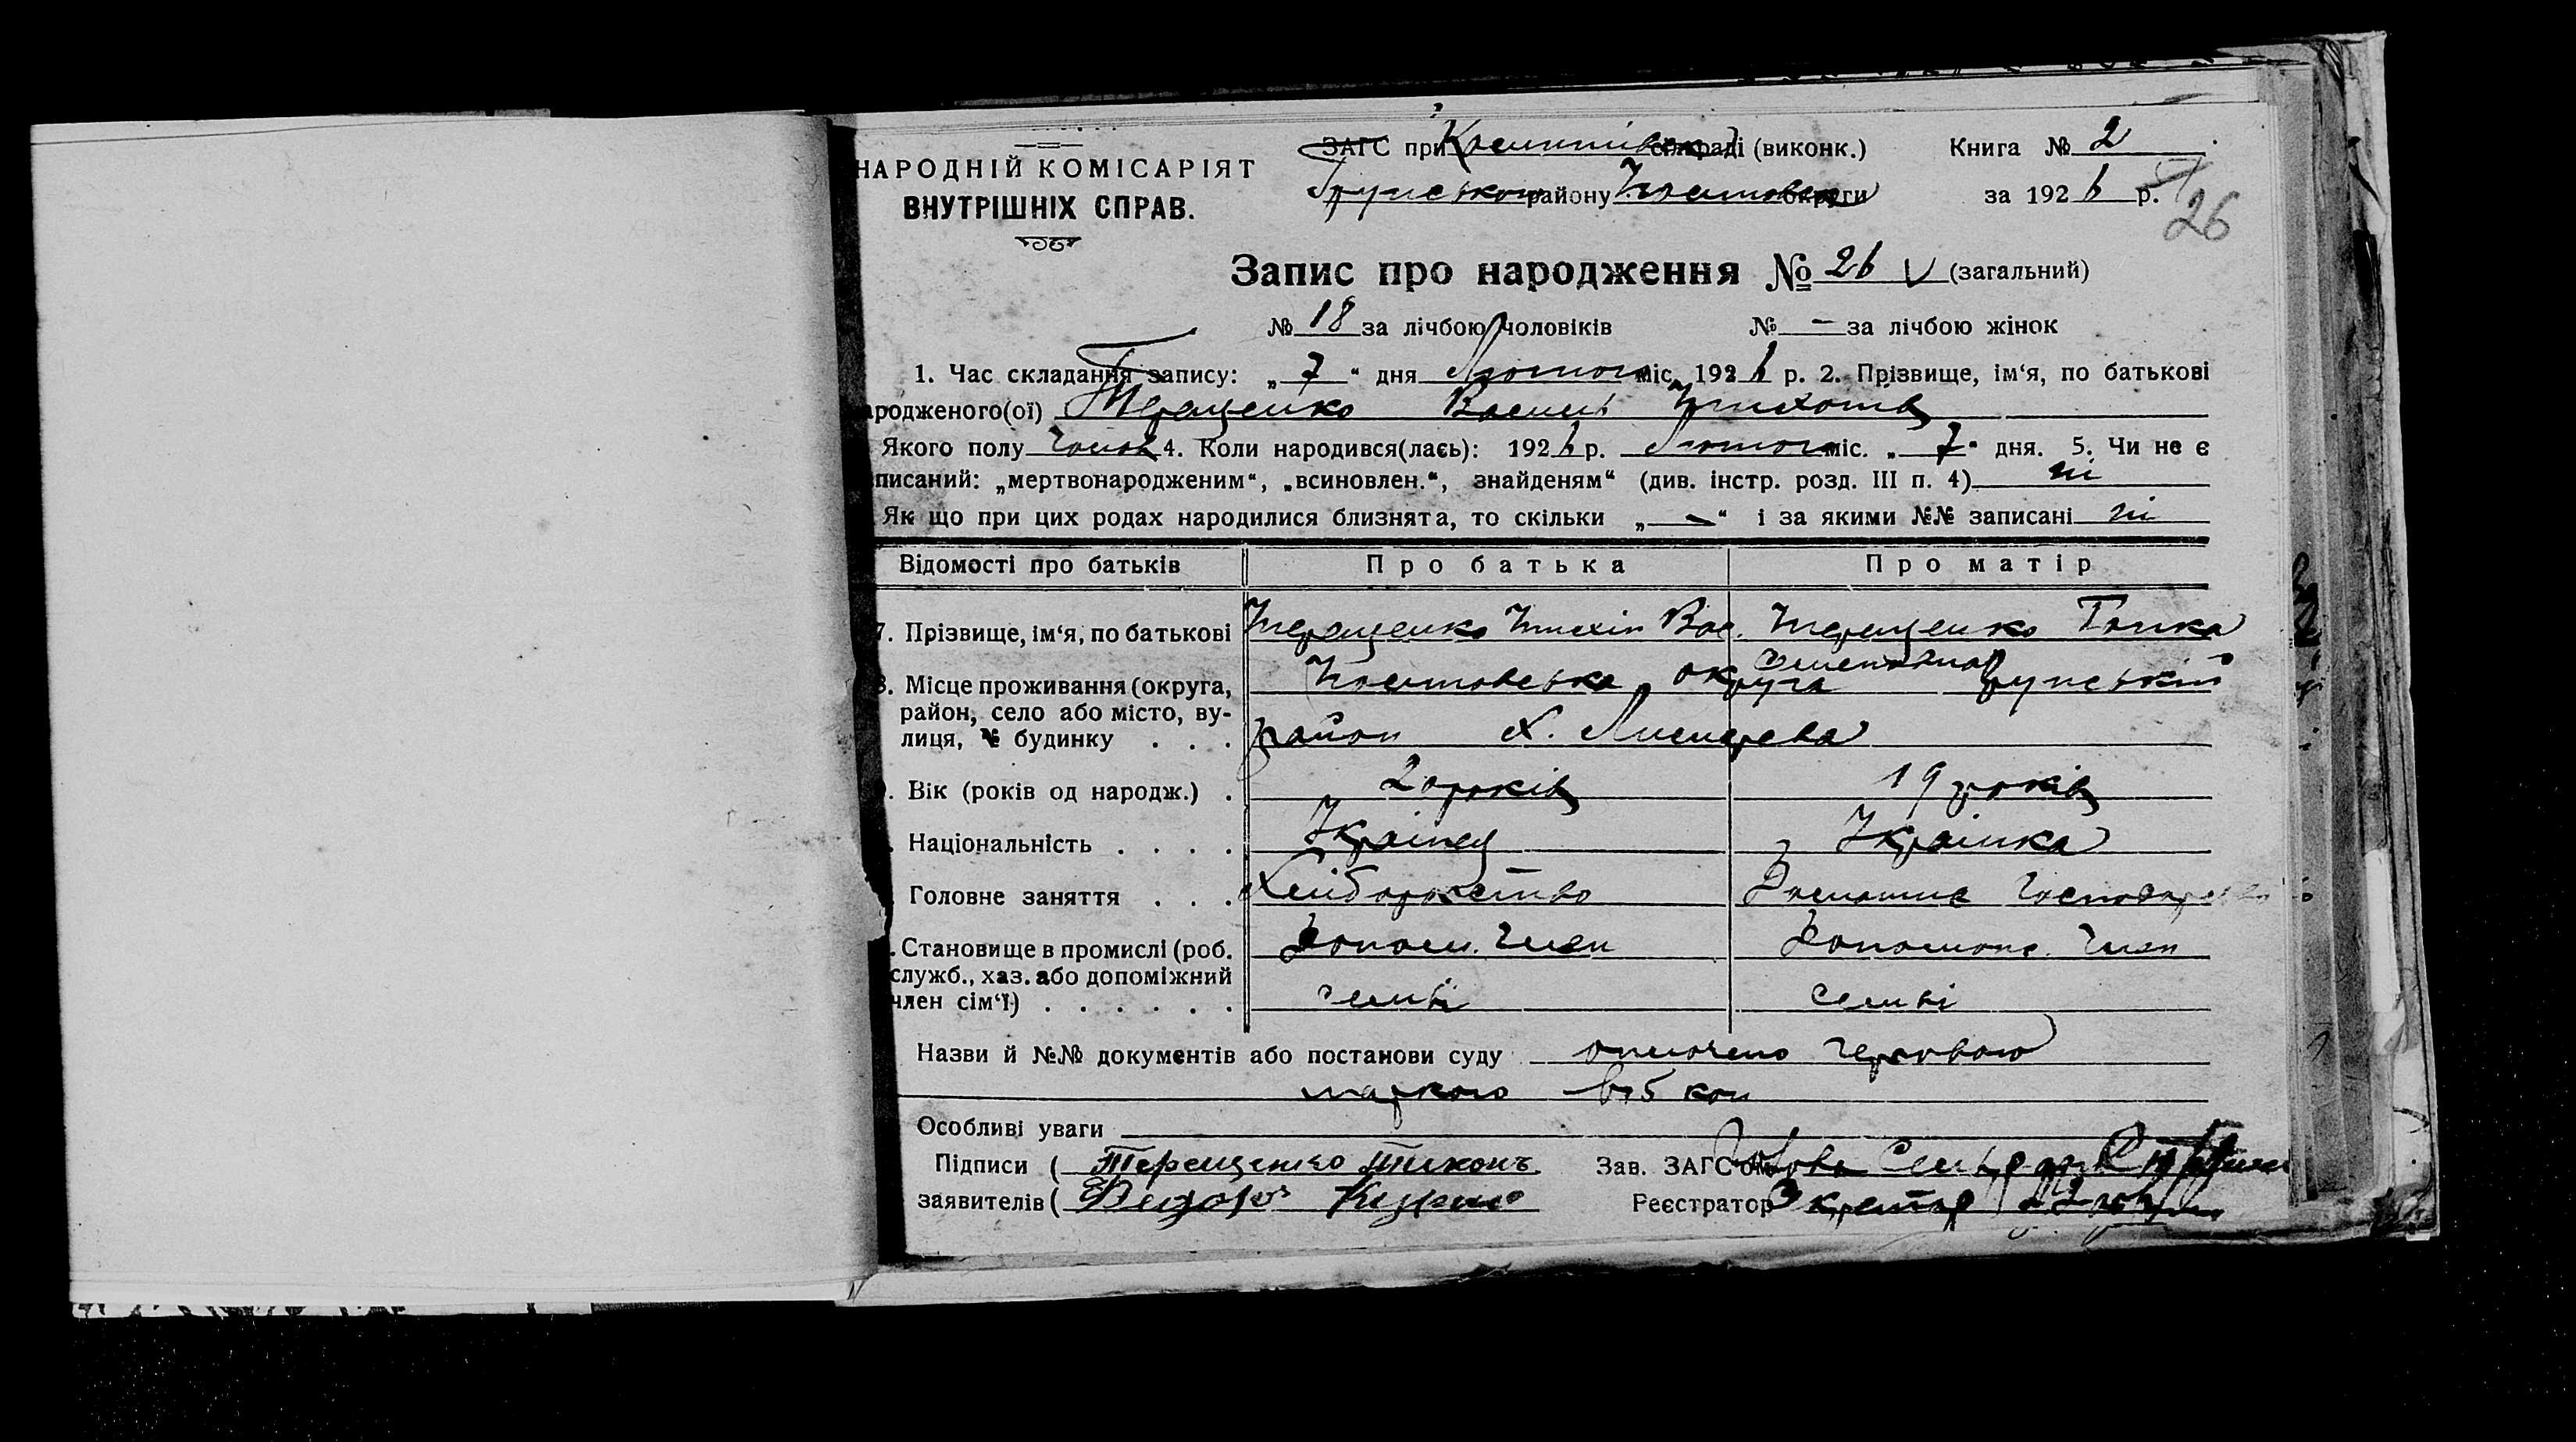 НАРОДНІЙ КОМІСАРІЯТ
ВНУТРІШНІХ СПРАВ.
ЗАГС при сільраді (виконк.)
Грунського району округи
Книга № 2
за 1926 р.
26
Запис про народження № 26 V (загальний)
№ 18 за лічбою чоловіків № – за лічбою жінок
1. Час складання запису: „7“ дня Лютого міс. 1926 р. 2. Прізвище, ім‘я, по батькові
ародженого(ої) Терещенко Василь Тихонів
Якого полу чолов 4. Коли народився(лась): 1926 р. Лютого міс. „7“ дня. 5. Чи не є
писаний: „мертвонародженим“, „всиновлен.“, знайденям“ (див. інстр. розд. III п. 4) ні
Як що при цих родах народилися близнята, то скільки „–“ і за якими №№ записані ні
Відомості про батьків Про батька Про матір
7. Прізвище, ім‘я, по батькові Терещенко Тихін Вас. Терещенко Ганка
8. Місце проживання (округа, округа Грунський
район, село або місто, ву-
лиця, № будинку . . . район х.
. Вік (років од народж.) . 20 років 19 років
. Національність . . . . Україней Українка
Головне заняття . . . Хліборобство Домашнє Господарство
. Становище в промислі (роб. Допом. член Допоможн. член
служб., хаз. або допоміжний
член сім‘ї) . . . . . . семьі семьі
Назви й №№ документів або постанови суду оплочено черговою
маркою в 5 коп
Особливі уваги
Підписи ( Терещенко Тихонъ Зав. ЗАГС‘ом Голова
заявителів ( Федоръ Реєстратор Секретар